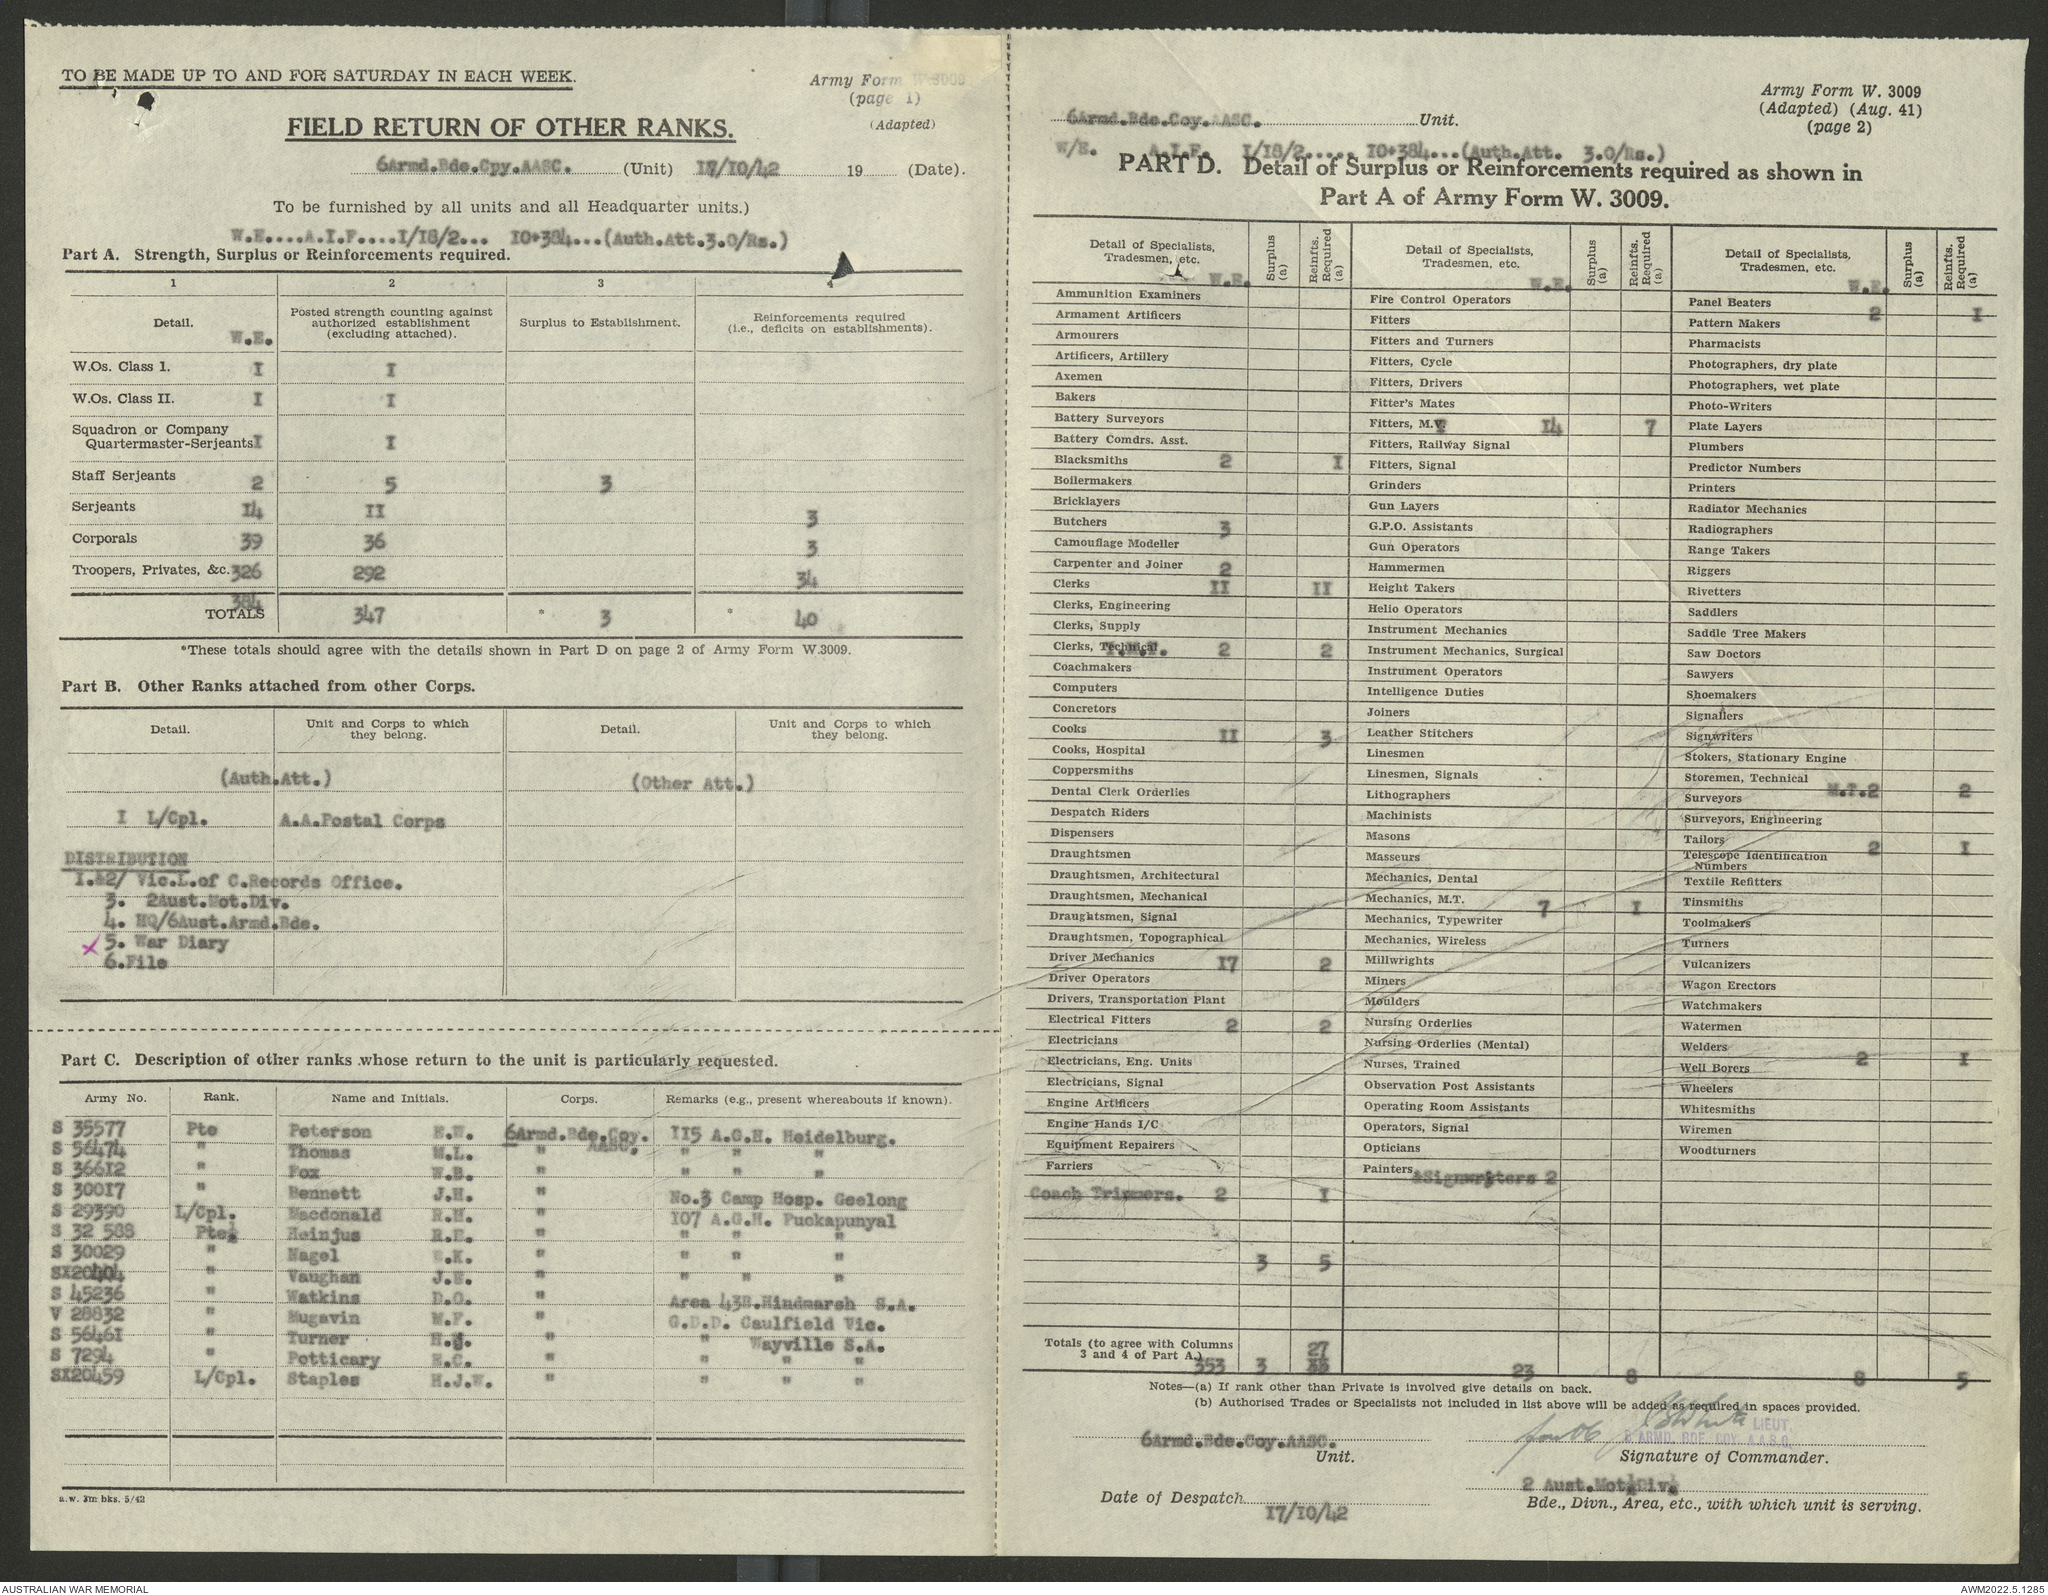 TO BE MADE UP TO AND FOR SATURDAY IN EACH WEEK.
Army Form W.3009
(page 1)
(Adapted)
FIELD RETURN OF OTHER RANKS.
6Armd.Bde.Cpy.AASC. (Unit) 17/10/42 19 (Date).
To be furnished by all units and all Headquarter units.)
W.E....A.I.F....I/I8/2... I0+384...(Auth.Att.3.O/Rs.)
Part A. Strength, Surplus or Reinforcements required.
1 2 3 4
Detail. W.E. Posted strength counting against authorized establishment (excluding attached). Surplus to Establishment. Reinforcements required (i.e., deficits on establishments).
W.Os. Class I. I I
W.Os. Class II. I I
Squadron or Company
Quartermaster-Serjeants I I
Staff Serjeants 2 5 3
Serjeants I4 II 3
Corporals 39 36 3
Troopers, Privates, &c. 326 292 34
384
TOTALS 347 * 3 * 40
*These totals should agree with the details shown in Part D on page 2 of Army Form W.3009.
Part B. Other Ranks attached from other Corps.
Detail. Unit and Corps to which they belong. Detail. Unit and Corps to which they belong.
(Auth.Att.) (Other Att.)
I L/Cpl. A.A.Postal Corps
DISTRIBUTION
I.&2/ Vic.L.of C.Records Office.
3. 2Aust.Mot.Div.
4. HQ/6Aust.Armd.Bde.
x 5. War Diary
6.File
Part C. Description of other ranks whose return to the unit is particularly requested.
Army No. Rank. Name and Initials. Corps. Remarks (e.g., present whereabouts if known).
S 35577 Pte Peterson E.W. 6Armd.Bde.Coy. AASC. II5 A.G.H. Heidelburg.
S 56474 " Thomas M.L. " " " "
S 366I2 " Fox W.B. " " " "
S 300I7 " Bennett J.H. " No.3 Camp Hosp. Geelong
S 29390 L/Cpl. Macdonald R.H. " I07 A.G.H. Puckapunyal
S 32 588 Pte. Heinjus R.E. " " " "
S 30029 " Nagel K. " " " "
SX20404 " Vaughan J.E. " " " "
S 45236 " Watkins D.O. " Area 43B.Hindmarsh S.A.
V 28832 " Mugavin M.F. " G.D.D. Caulfield Vic.
S 5646I " Turner H. " " Wayville S.A.
S 7294 " Potticary E.C. " " " "
SX20459 L/Cpl. Staples H.J.W. " " " "
a.w. 3m bks. 5/42
Army Form W. 3009
(Adapted) (Aug. 41)
(page 2)
6Armd.Bde.Coy.AASC. Unit.
W/E. A.I.F. I/I8/2..... I0+384...(Auth.Att. 3.O/Rs.)
PART D. Detail of Surplus or Reinforcements required as shown in
Part A of Army Form W. 3009.
Detail of Specialists, Tradesmen, etc. W.E. Surplus (a) Reinfts. Required (a)
Ammunition Examiners
Armament Artificers
Armourers
Artificers, Artillery
Axemen
Bakers
Battery Surveyors
Battery Comdrs. Asst.
Blacksmiths 2 I
Boilermakers
Bricklayers
Butchers 3
Camouflage Modeller
Carpenter and Joiner 2
Clerks II II
Clerks, Engineering
Clerks, Supply
Clerks, Technical 2 2
Coachmakers
Computers
Concretors
Cooks II 3
Cooks, Hospital
Coppersmiths
Dental Clerk Orderlies
Despatch Riders
Dispensers
Draughtsmen
Draughtsmen, Architectural
Draughtsmen, Mechanical
Draughtsmen, Signal
Draughtsmen, Topographical
Driver Mechanics I7 2
Driver Operators
Drivers, Transportation Plant
Electrical Fitters 2 2
Electricians
Electricians, Eng. Units
Electricians, Signal
Engine Artificers
Engine Hands I/C
Equipment Repairers
Farriers
Coach Trimmers. 2 I
3 5
Totals (to agree with Columns
3 and 4 of Part A.) 353 3 27
Detail of Specialists, Tradesmen, etc. W.E. Surplus (a) Reinfts. Required (a)
Fire Control Operators
Fitters
Fitters and Turners
Fitters, Cycle
Fitters, Drivers
Fitter's Mates
Fitters, M.V. I4 7
Fitters, Railway Signal
Fitters, Signal
Grinders
Gun Layers
G.P.O. Assistants
Gun Operators
Hammermen
Height Takers
Helio Operators
Instrument Mechanics
Instrument Mechanics, Surgical
Instrument Operators
Intelligence Duties
Joiners
Leather Stitchers
Linesmen
Linesmen, Signals
Lithographers
Machinists
Masons
Masseurs
Mechanics, Dental
Mechanics, M.T. 7 I
Mechanics, Typewriter
Mechanics, Wireless
Millwrights
Miners
Moulders
Nursing Orderlies
Nursing Orderlies (Mental)
Nurses, Trained
Observation Post Assistants
Operating Room Assistants
Operators, Signal
Opticians
Painters &Signwriters 2
23 8
Detail of Specialists, Tradesmen, etc. W.E. Surplus (a) Reinfts. Required (a)
Panel Beaters 2 I
Pattern Makers
Pharmacists
Photographers, dry plate
Photographers, wet plate
Photo-Writers
Plate Layers
Plumbers
Predictor Numbers
Printers
Radiator Mechanics
Radiographers
Range Takers
Riggers
Rivetters
Saddlers
Saddle Tree Makers
Saw Doctors
Sawyers
Shoemakers
Signallers
Signwriters
Stokers, Stationary Engine
Storemen, Technical M.T.2 2
Surveyors
Surveyors, Engineering
Tailors 2 I
Telescope Identification Numbers
Textile Refitters
Tinsmiths
Toolmakers
Turners
Vulcanizers
Wagon Erectors
Watchmakers
Watermen
Welders 2 I
Well Borers
Wheelers
Whitesmiths
Wiremen
Woodturners
8 5
Notes—(a) If rank other than Private is involved give details on back.
(b) Authorised Trades or Specialists not included in list above will be added as required in spaces provided.
LIEUT.
6 ARMD. BDE. COY. A.A.S.C.
6Armd.Bde.Coy.AASC.
Unit.
Signature of Commander.
2 Aust.Mot.Div.
Date of Despatch 17/10/42
Bde., Divn., Area, etc., with which unit is serving.
AUSTRALIAN WAR MEMORIAL
AWM2022.5.1285